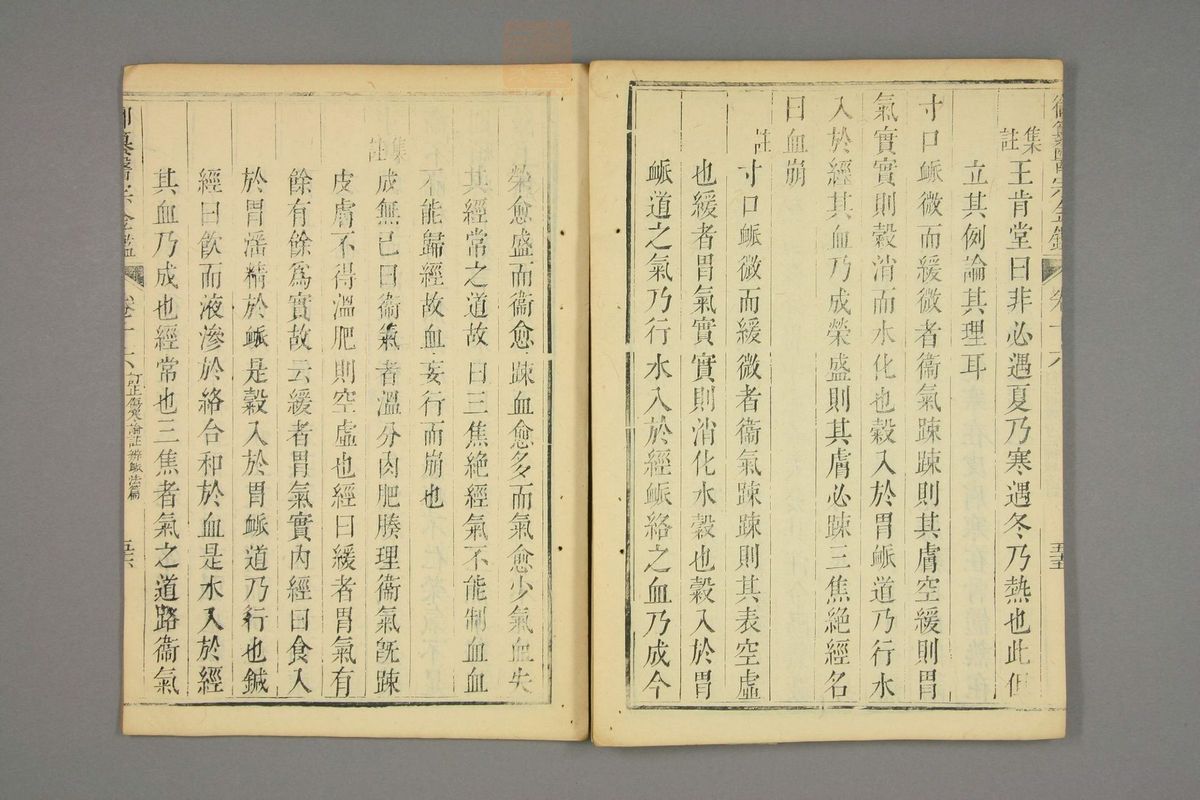 御纂醫宗金鑑 卷十六 五五
集註王肯堂曰非必遇夏乃寒遇冬乃熱也此但
立其例論其理耳
寸口脈微而緩微者衞氣踈踈則其膚空緩則胃
氣實實則穀消而水化也穀入於胃脈道乃行水
入於經其血乃成榮盛則其膚必踈三焦絶經名
曰血崩
註寸口脈微而緩微者衞氣踈踈則其表空虛
也緩者胃氣實實則消化水穀也穀入於胃
脈道之氣乃行水入於經脈絡之血乃成今
榮愈盛而衞愈踈血愈多而氣愈少氣血失
其經常之道故曰三焦絶經氣不能制血血
不能歸經故血妄行而崩也
集註成無已曰衞氣者溫分肉肥腠理衞氣旣踈
皮膚不得溫肥則空虛也經曰緩者胃氣有
餘有餘爲實故云緩者胃氣實內經曰食入
於胃淫精於脈是穀入於胃脈道乃行也鍼
經曰飮而液滲於絡合和於血是水入於經
其血乃成也經常也三焦者氣之道路衞氣
御纂醫宗金鑑 卷十六 訂正傷寒論註 辨脈法篇 五六